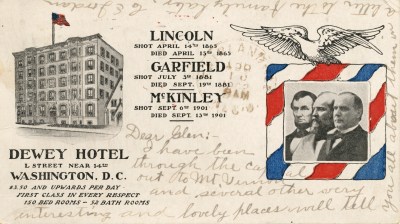 LINCOLN
SHOT APRIL 14TH 1865
DIED APRIL 15TH 1865
GARFIELD
SHOT JULY 3D 1881
DIED SEPT. 19TH 1881
McKINLEY
SHOT SEPT 6TH 1901
DIED SEPT. 13TH 1901
DEWEY HOTEL
L STREET NEAR 14TH
WASHINGTON, D.C.
$3.50 AND UPWARDS PER DAY
FIRST CLASS IN EVERY RESPECT
150 BED ROOMS - 52 BATH ROOMS
Dear Clen:
I have been
through the capitol
out to Mt Vernon
and several other very
interesting and lovely places will tell
you all about